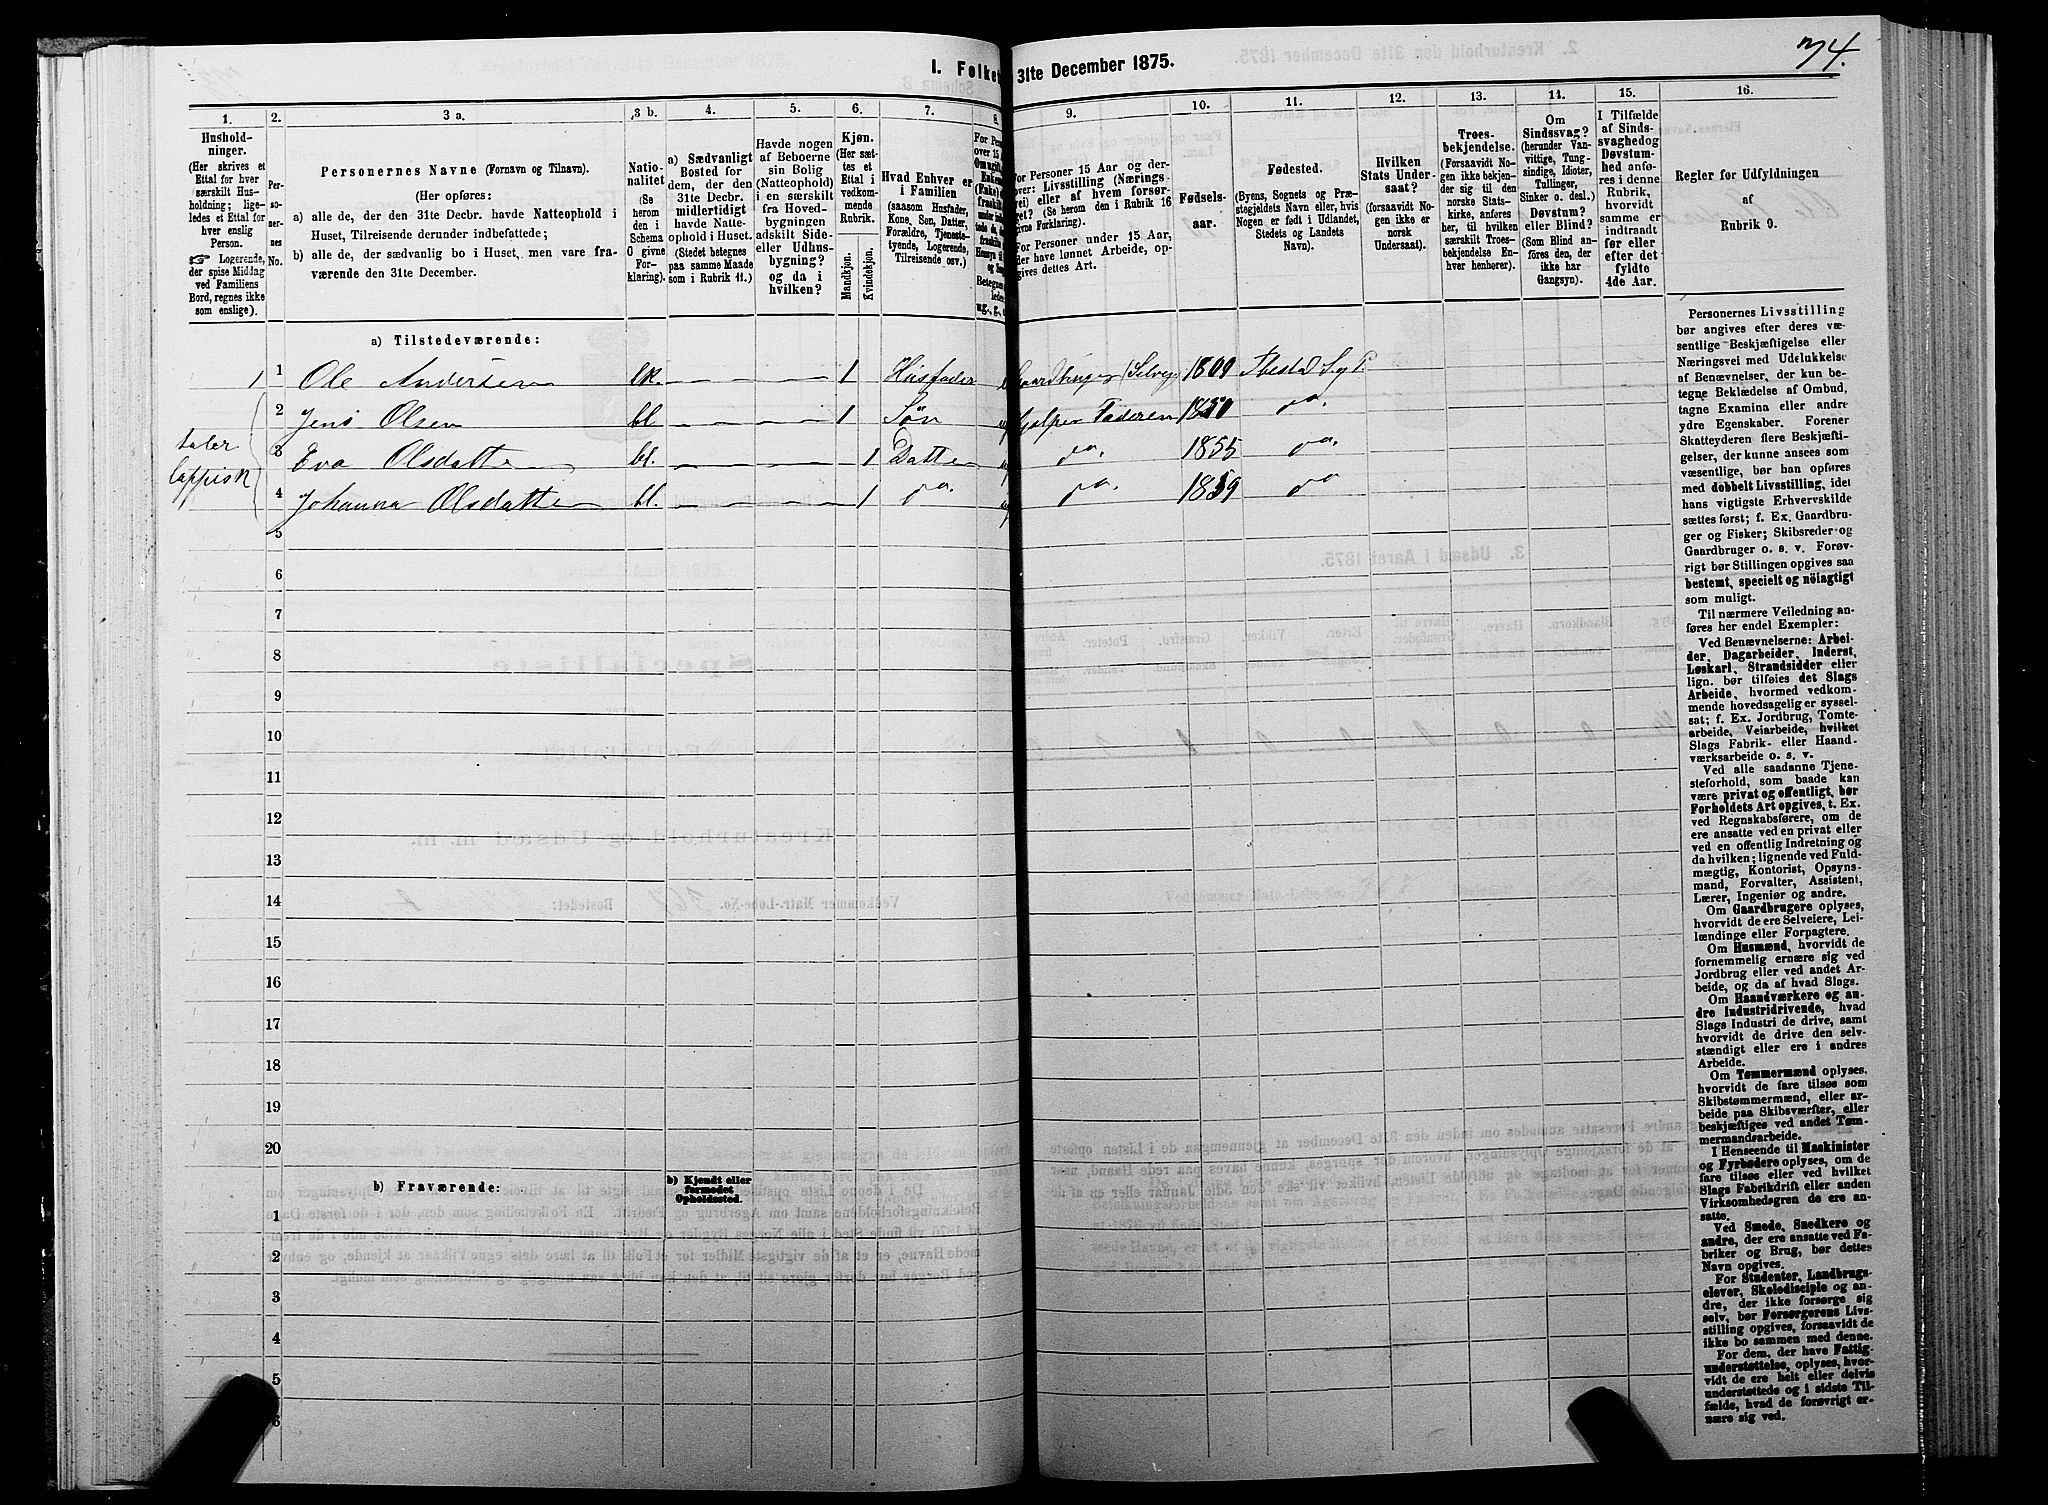 I. Folket
31te December 1875.
74.
1.
Hushold-
ninger.
(Her skrives et
Ettal for hver
særskilt Hus-
holdning; lige-
ledes et Ettal for
hver enslig
Person.
☞ Logerende,
der spise Middag
ved Familiens
Bord, regnes ikke
som enslige).
2.
Per-
so-
ner-
nes
No.
3 a.
Personernes Navne (Fornavn og Tilnavn).
(Her opføres:
a) alle de, der den 31te Decbr. havde Natteophold i
Huset, Tilreisende derunder indbefattede;
b) alle de, der sædvanlig bo i Huset, men vare fra-
værende den 31te December.
3 b.
Natio-
nalitet
(Se
herom
den i
Schema
C givne
For-
klaring).
4.
a) Sædvanligt
Bosted for
dem, der den
31te Decbr.
midlertidigt
havde Natte-
ophold i Huset.
(Stedet betegnes
paa samme Maade
som i Rubrik 11.)
5.
Havde nogen
af Beboerne
sin Bolig
(Natteophold)
i en særskilt
fra Hoved-
bygningen
adskilt Side-
eller Udhus-
bygning?
og da i
hvilken?
6.
Kjøn.
(Her sæt-
tes et
Ettal i
vedkom-
mende
Rubrik.
Mandkjøn.
Kvindekjøn.
7.
Hvad Enhver er
i Familien
(saasom Husfader,
Kone, Søn, Datter,
Forældre, Tjeneste-
tyende, Logerende,
Tilreisende osv.)
8.
For Pers
over 15
9.
For Personer 15 Aar og der-
over: Livsstilling (Nærings-
vei) eller af hvem forsør-
get? (Se herom den i Rubrik 16
givne Forklaring).
For Personer under 15 Aar,
der have lønnet Arbeide, op-
gives dettes Art.
10.
Fødsels-
aar.
11.
Fødested.
(Byens, Sognets og Præ-
stegjeldets Navn eller, hvis
Nogen er født i Udlandet,
Stedets og Landets
Navn).
12.
Hvilken
Stats Under-
saat?
(forsaavidt No-
gen ikke er
norsk
Undersaat).
13.
Troes-
bekjendelse.
(Forsaavidt No-
gen ikke bekjen-
der sig til den
norske Stats-
kirke, anføres
her, til hvilken
særskilt Troes-
bekjendelse En-
hver henhører).
14.
Om
Sindssvag?
(herunder Van-
vittige, Tung-
sindige, Idioter,
Tullinger,
Sinker o. desl.)
Døvstum?
eller Blind?
(Som Blind an-
føres den, der
ikke har
Gangsyn).
15.
I Tilfælde
af Sinds-
svaghed og
Døvstum-
hed anfø-
res i denne
Rubrik,
hvorvidt
samme er
indtraadt
før eller
efter det
fyldte
4de Aar.
16.
Regler for Udfyldningen
af
Rubrik 9.
a) Tilstedeværende:
1 1 Ole Andersen lk. 1 Husfader Gaardbruger (Selvej) 1809 Ibestad S. g P.
2 Jens Olsen bl 1 Søn Hjælper Faderen 1850 do.
taler
3 Eva Olsdatter bl. 1 Datter do. 1855 do.
lappisk
4 Johanna Olsdatter bl. 1 do. do. 1859 do
5
6
7
8
9
10
11
12
13
14
15
16
17
18
19
20
b) Fraværende:
b) Kjendt eller
formodet
Opholdssted.
1
2
3
4
5
6
Personernes Livsstilling
bør angives efter deres væ-
sentlige Beskjæftigelse eller
Næringsvei med Udelukkelse
af Benævnelser, der kun be-
tegne Beklædelse af Ombud,
tagne Examina eller andre
ydre Egenskaber. Forener
Skatteyderen flere Beskjæfti-
gelser, der kunne ansees som
væsentlige, bør han opføres
med dobbelt Livsstilling, idet
hans vigtigste Erhvervskilde
sættes først; f. Ex. Gaardbru-
ger og Fisker; Skibsreder og
Gaardbruger o. s. v. Forøv-
rigt bør Stillingen opgives saa
bestemt, specielt og nöiagtigt
som muligt.
Til nærmere Veiledning an-
føres her endel Exempler:
Ved Benævnelserne: Arbei-
der, Dagarbeider, Inderst,
Løskarl, Strandsidder eller
lign. bør tilføies det Slags
Arbeide, hvormed vedkom-
mende hovedsagelig er syssel-
sat; f. Ex. Jordbrug, Tomte-
arbeide, Veiarbeide, hvilket
Slags Fabrik- eller Haand-
værksarbeide o. s. v.
Ved alle saadanne Tjene-
steforhold, som baade kan
være privat og offentligt, bør
Forholdets Art opgives, t. Ex.
ved Regnskabsførere, om de
ere ansatte ved en privat eller
ved en offentlig Indretning og
da hvilken; lignende ved Fuld-
mægtig, Kontorist, Opsyns-
mand, Forvalter, Assistent,
Lærer, Ingeniør og andre.
Om Gaardbrugere oplyses,
hvorvidt de ere Selveiere, Lei-
lændinge eller Forpagtere.
Om Husmænd, hvorvidt de
fornemmelig ernære sig ved
Jordbrug eller ved andet Ar-
beide, og da af hvad Slags.
Om Haandværkere og an-
dre Industridrivende, hvad
Slags Industri de drive, samt
hvorvidt de drive den selv-
stændigt eller ere i andres
Arbeide.
Om Tømmermænd oplyses,
hvorvidt de fare tilsøs som
Skibstømmermænd, eller ar-
beide paa Skibsværfter, eller
beskjæftiges ved andet Tøm-
mermandsarbeide.
I Henseende til Maskinister
og Fyrbødere oplyses, om de
fare tilsøs eller ved hvilket
Slags Fabrikdrift eller anden
Virksomhedsgren de ere an-
satte.
Ved Smede, Snedkere og
andre, der ere ansatte ved Fa-
briker og Brug, bør dettes
Navn opgives.
For Studenter, Landbrugs-
elever, Skoledisciple og an-
dre, der ikke forsørge sig
selv, bør Forsørgerens Livs-
stilling opgives, forsaavidt de
ikke bo sammen med denne.
For dem, der have Fattig-
understøttelse, oplyses, hvor-
vidt de ere helt eller delvis
understøttede og i sidste Til-
fælde, hvad de forøvrigt er-
nære sig ved.